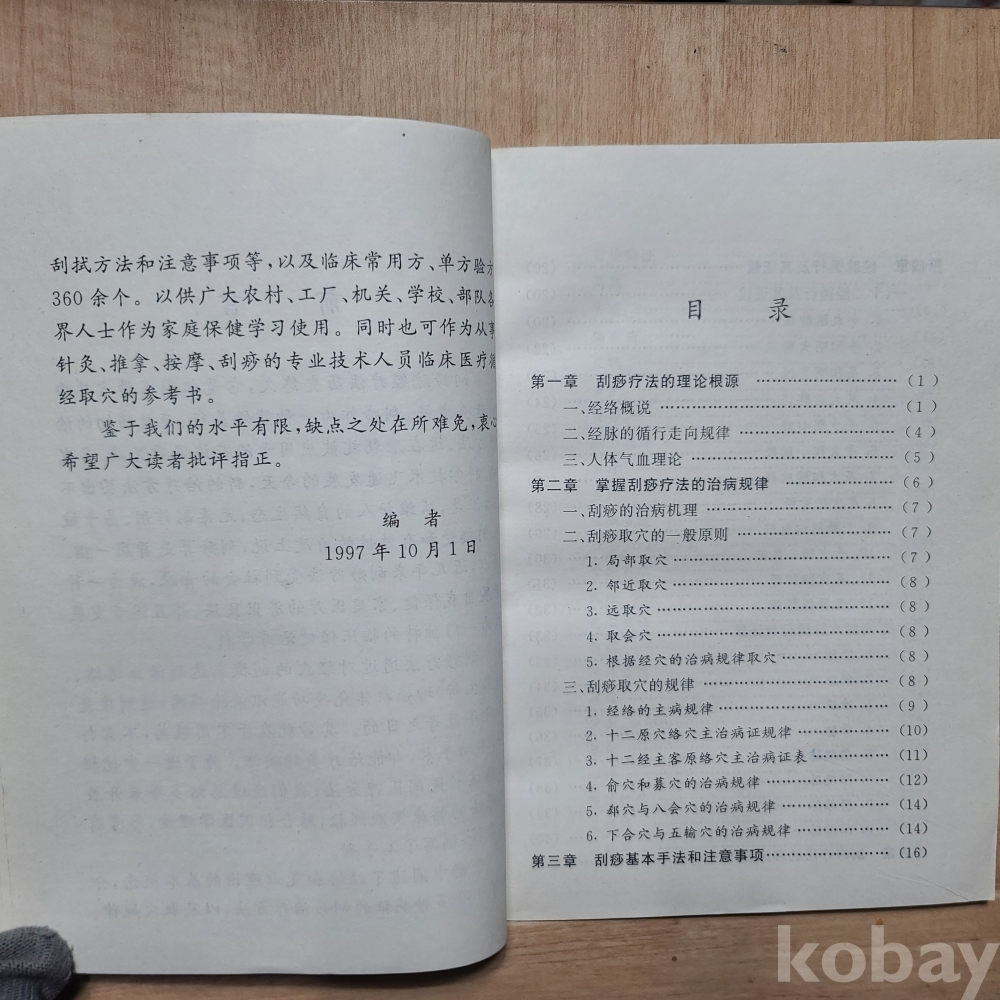 刮拭方法和注意事项等,以及临床常用方、单方验方
360余个。以供广大农村、工厂、机关、学校、部队各
界人士作为家庭保健学习使用。同时也可作为从事
针灸、推拿、按摩、刮痧的专业技术人员临床医疗
经取穴的参考书。
鉴于我们的水平有限,缺点之处在所难免,衷心
希望广大读者批评指正。
编 者
1997年10月1日
目 录
第一章 刮痧疗法的理论根源 ……………………(1)
一、经络概说 ……………………(1)
二、经脉的循行走向规律 ……………………(4)
三、人体气血理论 ……………………(5)
第二章 掌握刮痧疗法的治病规律 ……………………(6)
一、刮痧的治病机理 ……………………(7)
二、刮痧取穴的一般原则 ……………………(7)
1. 局部取穴 ……………………(7)
2. 邻近取穴 ……………………(8)
3. 远取穴 ……………………(8)
4. 取会穴 ……………………(8)
5. 根据经穴的治病规律取穴 ……………………(8)
三、刮痧取穴的规律 ……………………(8)
1. 经络的主病规律 ……………………(9)
2. 十二原穴络穴主治病证规律 ……………………(10)
3. 十二经主客原络穴主治病证表 ……………………(11)
4. 俞穴和募穴的治病规律 ……………………(12)
5. 郄穴与八会穴的治病规律 ……………………(14)
6. 下合穴与五输穴的治病规律 ……………………(14)
第三章 刮痧基本手法和注意事项 ……………………(16)
kobay